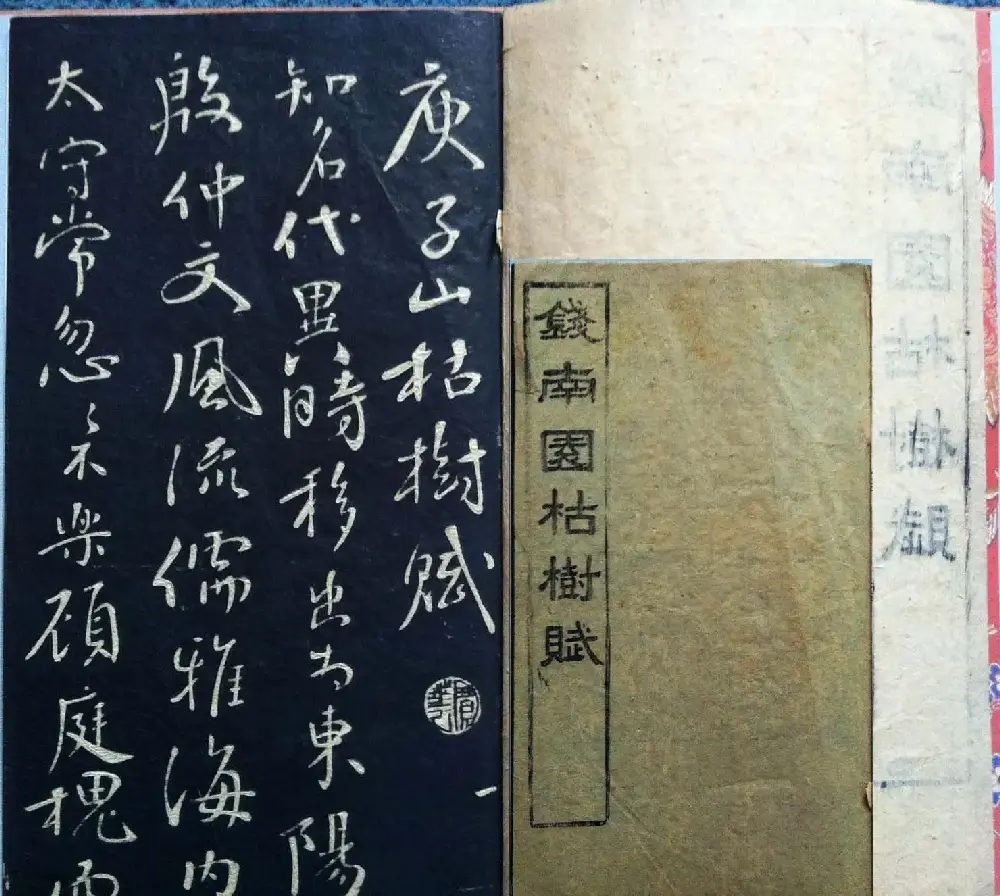 錢南園枯樹賦
庾子山枯樹賦
知名代異時移出為東陽
殷仲文風流儒雅海内
太守常忽〻不樂顧庭槐而